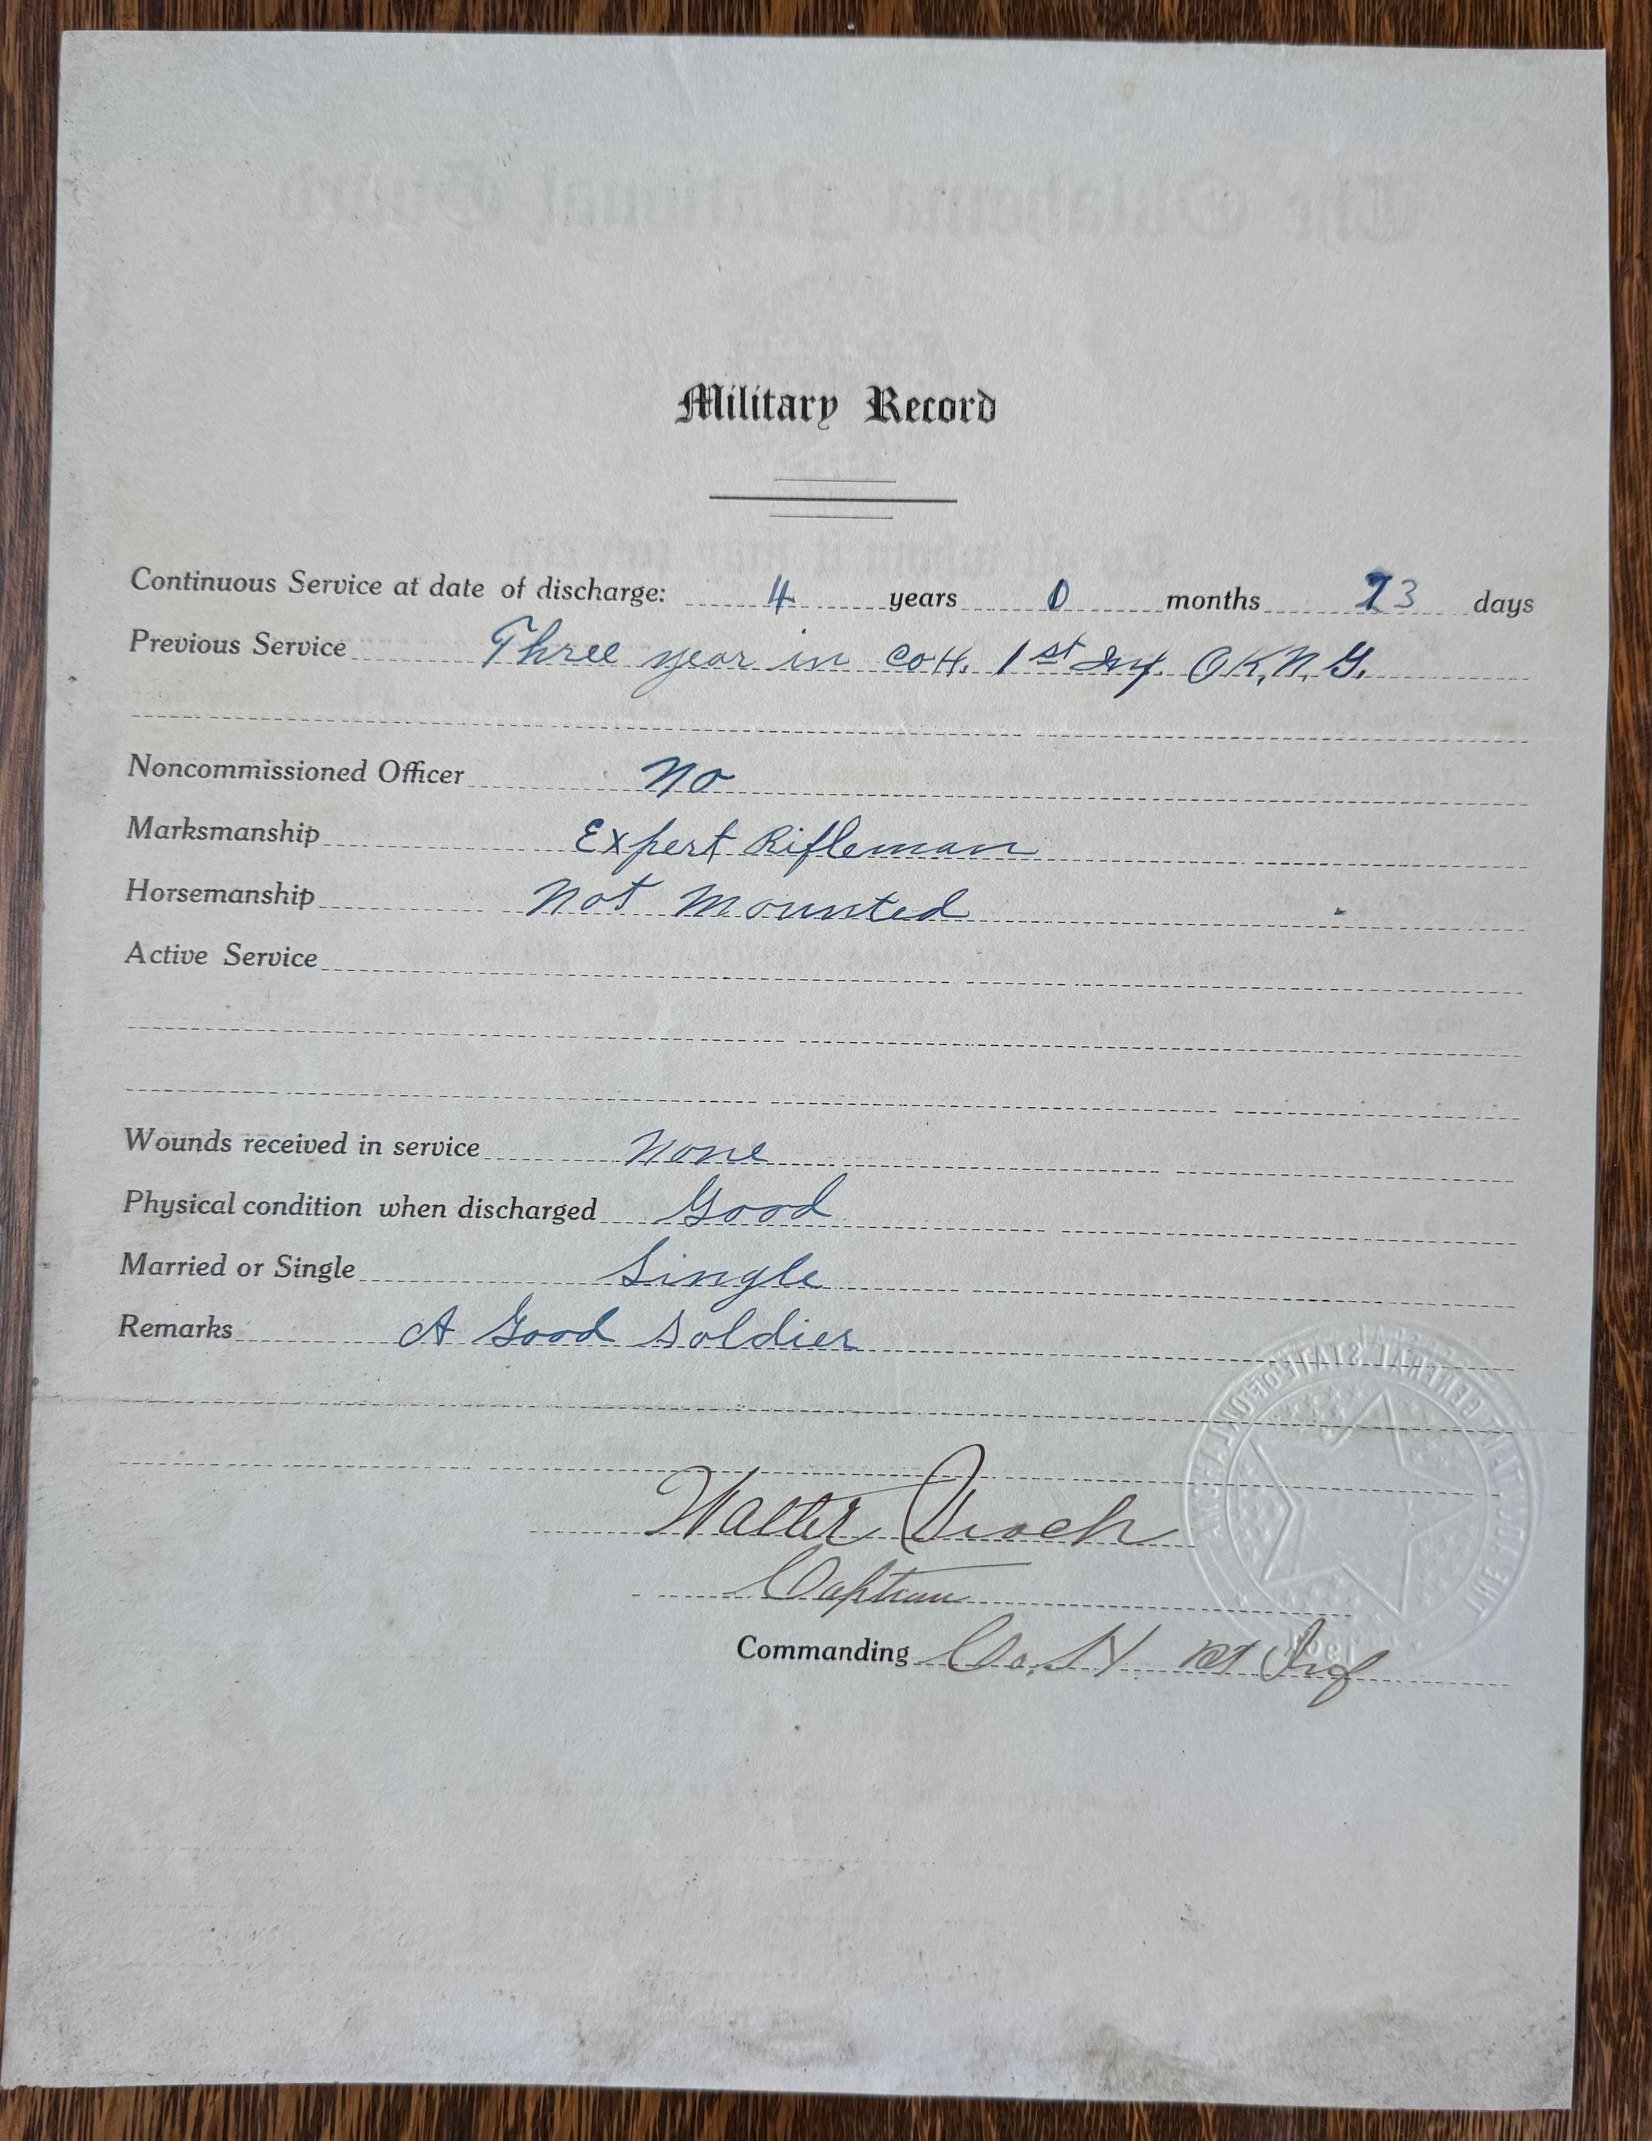 The Oklahoma National Guard
Military Record
To all whom it may concern
Continuous Service at date of discharge: 4 years 0 months 23 days
Previous Service Three year in Co H. 1st Inf. O K. N. G.
Noncommissioned Officer No
Marksmanship Expert Rifleman
Horsemanship Not Mounted
Active Service
Wounds received in service None
Physical condition when discharged Good
Married or Single Single
Remarks A Good Soldier
THE ADJUTANT GENERAL STATE OF OKLAHOMA
Walter
Captain
Commanding Co. H 1st Inf